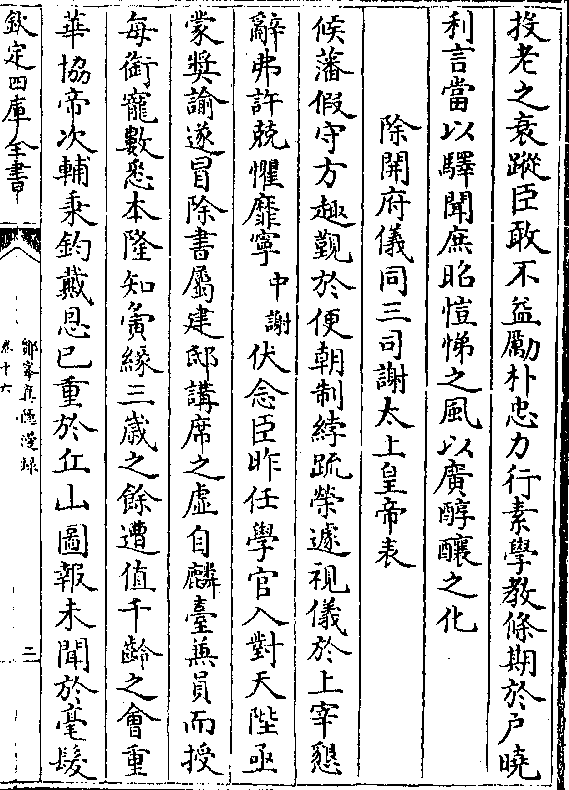 投老之衰蹤臣敢不益勵朴忠力行素學教條期於戶曉
利言當以驛聞庶昭愷悌之風以廣醇釀之化
除開府儀同三司謝太上皇帝表
候藩假守方趣覲於便朝制綍疏榮遽視儀於上宰懇
辭弗許兢懼靡寧中謝伏念臣昨任學官入對天陛亟
蒙奬諭遂冒除書屬建邸講席之虛自麟臺兼員而授
每銜寵數悉本隆知夤緣三歲之餘遭值千齡之會重
華協帝次輔秉鈞戴恩已重於丘山圖報未聞於毫髮
欽定四庫全書
鄮峯真隱漫錄
卷十六
二